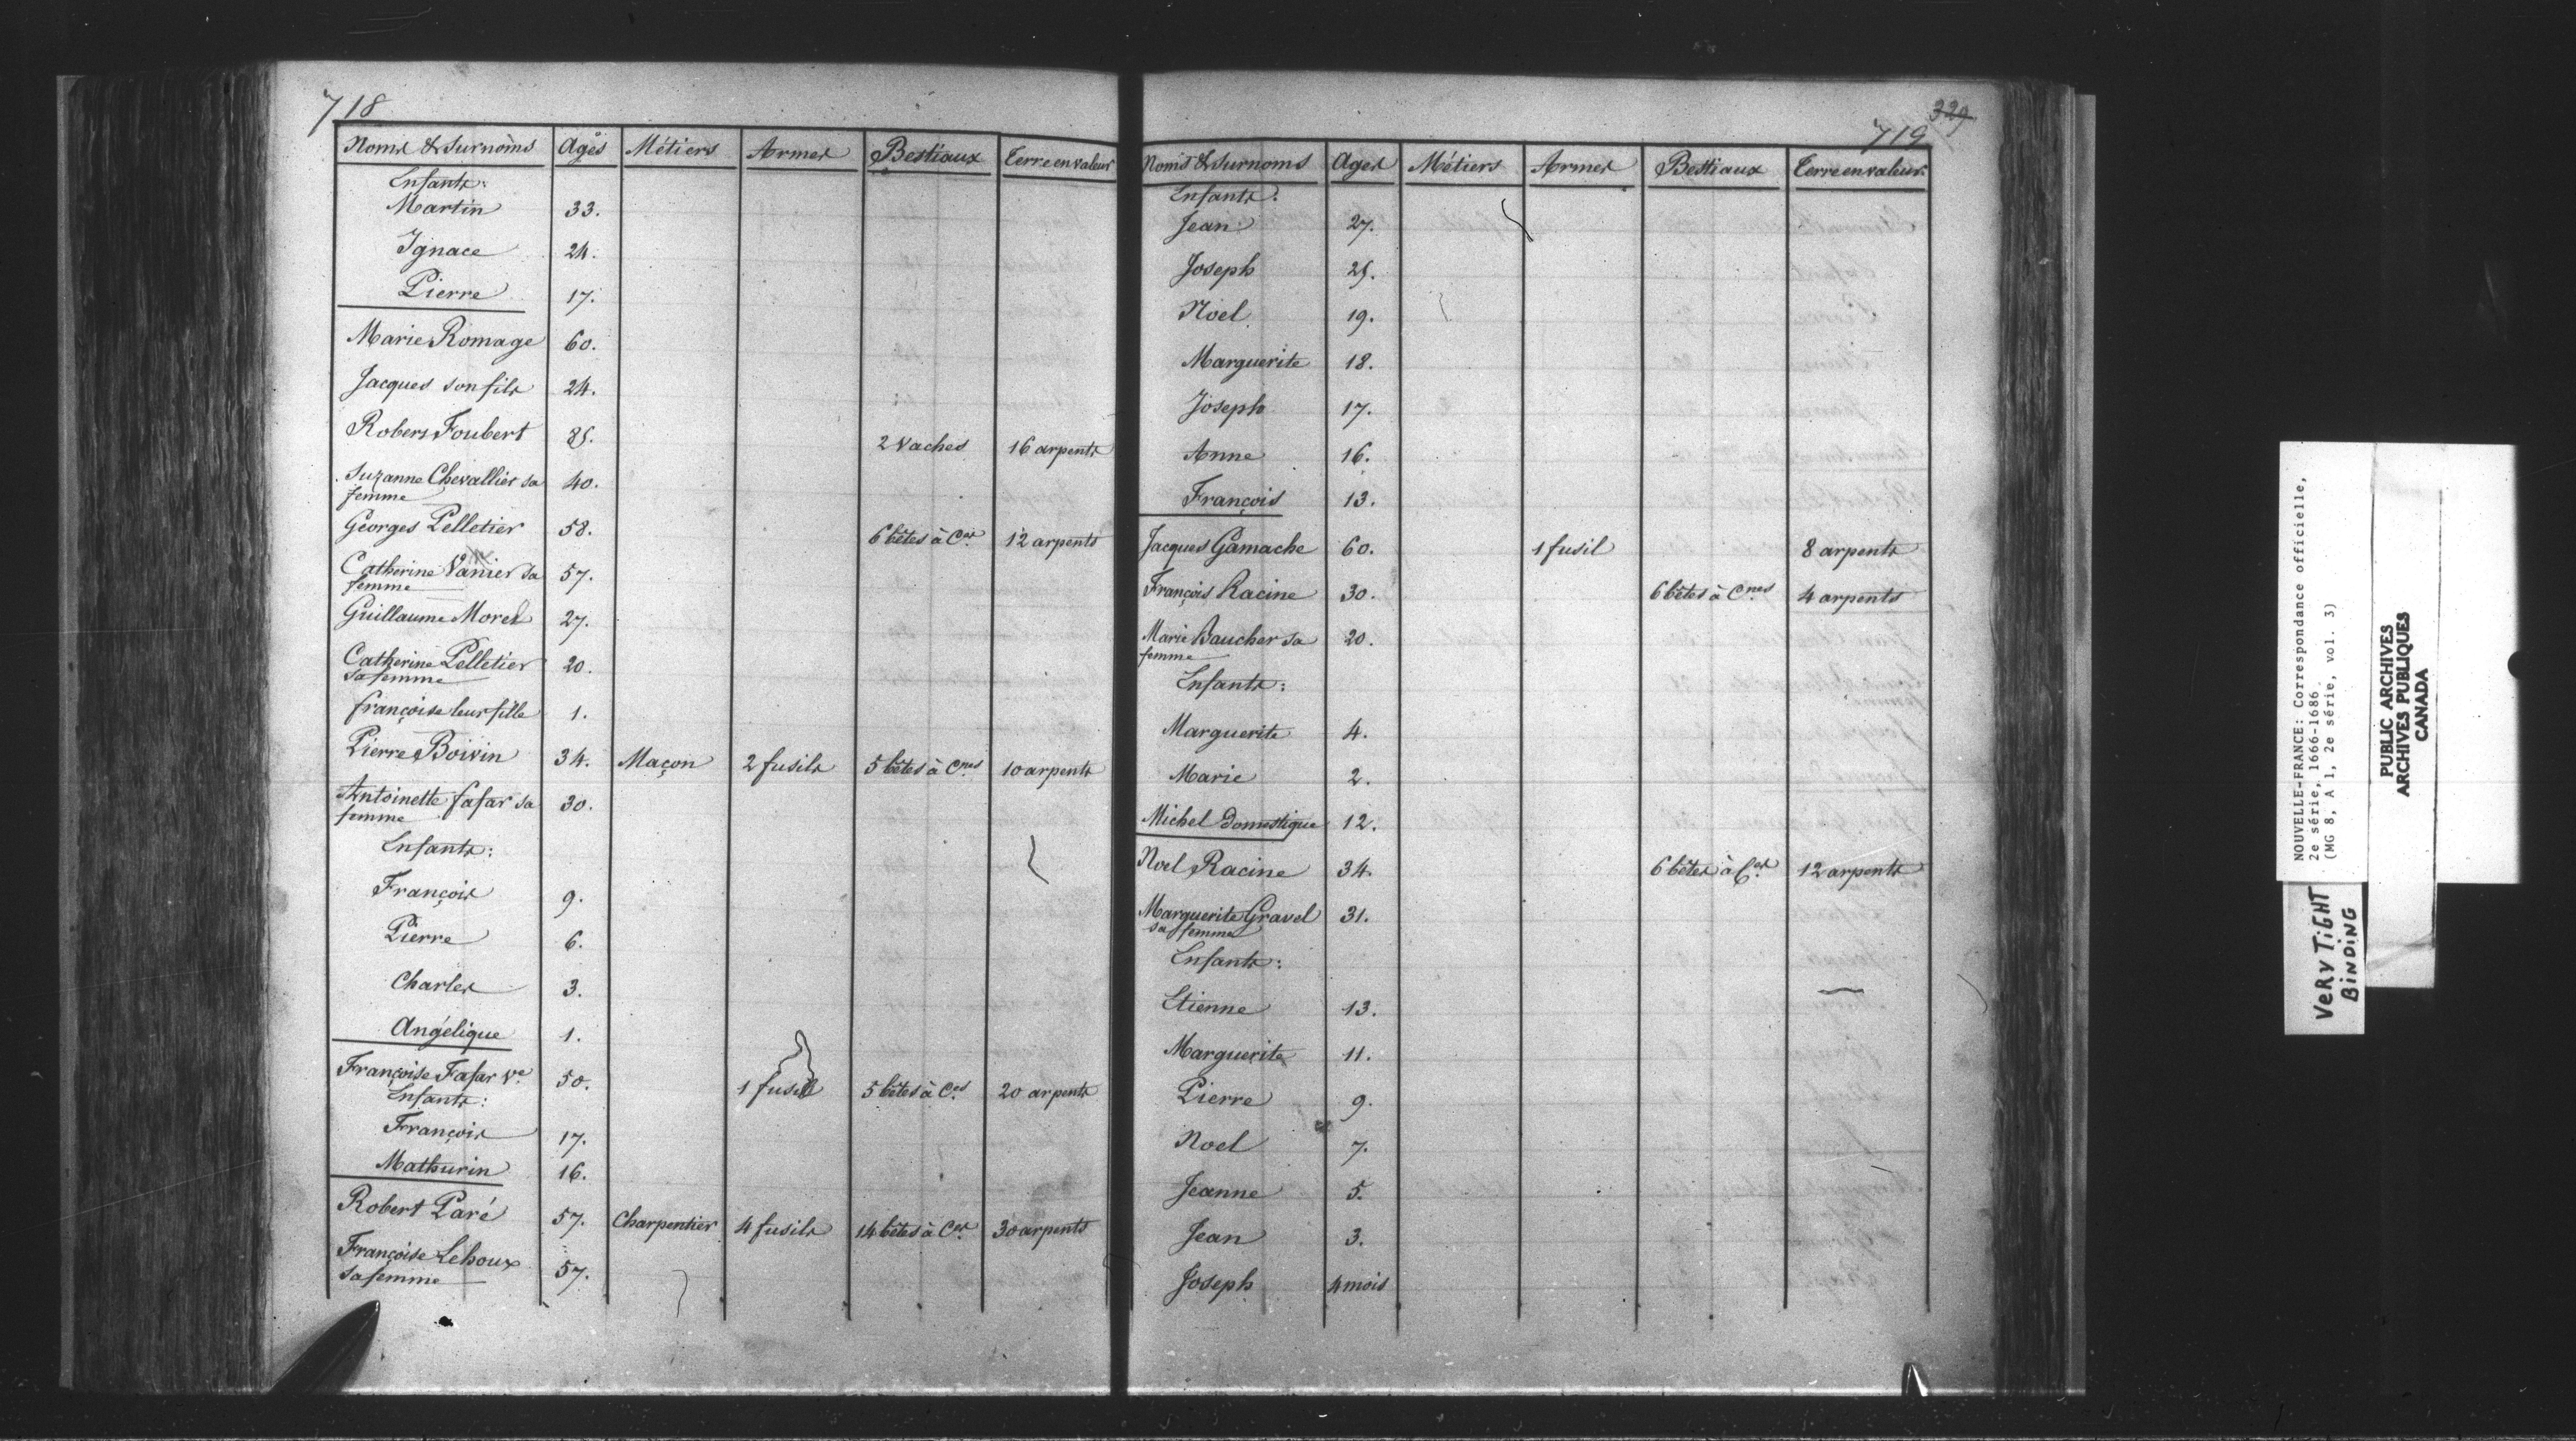 718
Noms & Surnoms Agés Métiers Armes Bestiaux Terre en valeur
Enfants:
Martin 33.
Ignace 24.
Pierre 17.
Marie Romage 60.
Jacques son fils 24.
Robers Foubert 85. 2 Vaches 16 arpents
Suzanne Chevallier sa femme 40.
Georges Pelletier 58. 6 bêtes à Ces 12 arpents
Catherine Vanier sa femme 57.
Guillaume Morel 27.
Catherine Pelletier sa femme 20.
françoise leur fille 1.
Pierre Boivin 34. Maçon 2 fusils 5 bêtes à Cnes 10 arpents
Antoinette fafar sa femme 30.
Enfants:
François 9.
Pierre 6.
Charles 3.
Angélique 1.
Françoise Fafar Ve 50. 1 fusil 5 bêtes à Ces 20 arpents
Enfants:
François 17.
Mathurin 16.
Robert Paré 57. Charpentier 4 fusils 14 bêtes à Ces 30 arpents
Françoise Lehoux sa femme 57.
329
719
Noms & Surnoms Ages Métiers Armes Bestiaux Terre en valeur
Enfants:
Jean 27.
Joseph 25.
Noel 19.
Marguerite 18.
Joseph 17.
Anne 16.
François 13.
Jacques Gamache 60. 1 fusil 8 arpents
François Racine 30. 6 bêtes à Cnes 4 arpents
Marie Baucher sa femme 20.
Enfants:
Marguerite 4.
Marie 2.
Michel Domestique 12.
Noel Racine 34. 6 bêtes à Ces 12 arpents
Marguerite Gravel sa femme 31.
Enfants:
Etienne 13.
Marguerite 11.
Pierre 9.
Noel 7.
Jeanne 5.
Jean 3.
Joseph 4 mois
NOUVELLE-FRANCE: Correspondance officielle,
2e série, 1666-1686
(MG 8, A 1, 2e série, vol. 3)
VERY TIGHT
BINDING
PUBLIC ARCHIVES
ARCHIVES PUBLIQUES
CANADA